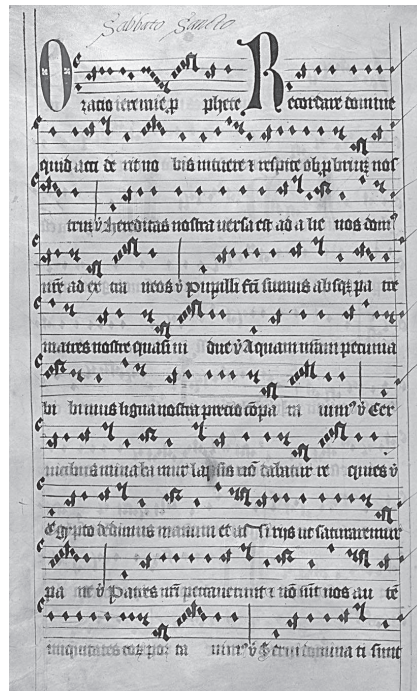 Sabbato Sancto
Oratio ieremie p phete Recordare domine
quid acci de rit no bis intuere ⁊ respice obprobriuʒ nos
trum ỽ hereditas nostra versa est ad a lie nos dom⁹
nr̄e ad ex tra neos ỽ Pupilli fcī sumus absqʒ pa tre
matres nostre quasi vi due ỽ Aquam nr̄am pecunia
bi bimus ligna nostra precio cōpa ra uim⁹ ỽ Cer
uicibus mina ba mur lassis nō dabatur re quies ỽ
Egypto dedimus manum et as si rijs ut saturaremur
pa ne ỽ Patres nr̄i peccauerunt ⁊ nō sūt nos au tē
iniquitates eoꝝ por ta uim⁹ ỽ Serui domina ti sunt